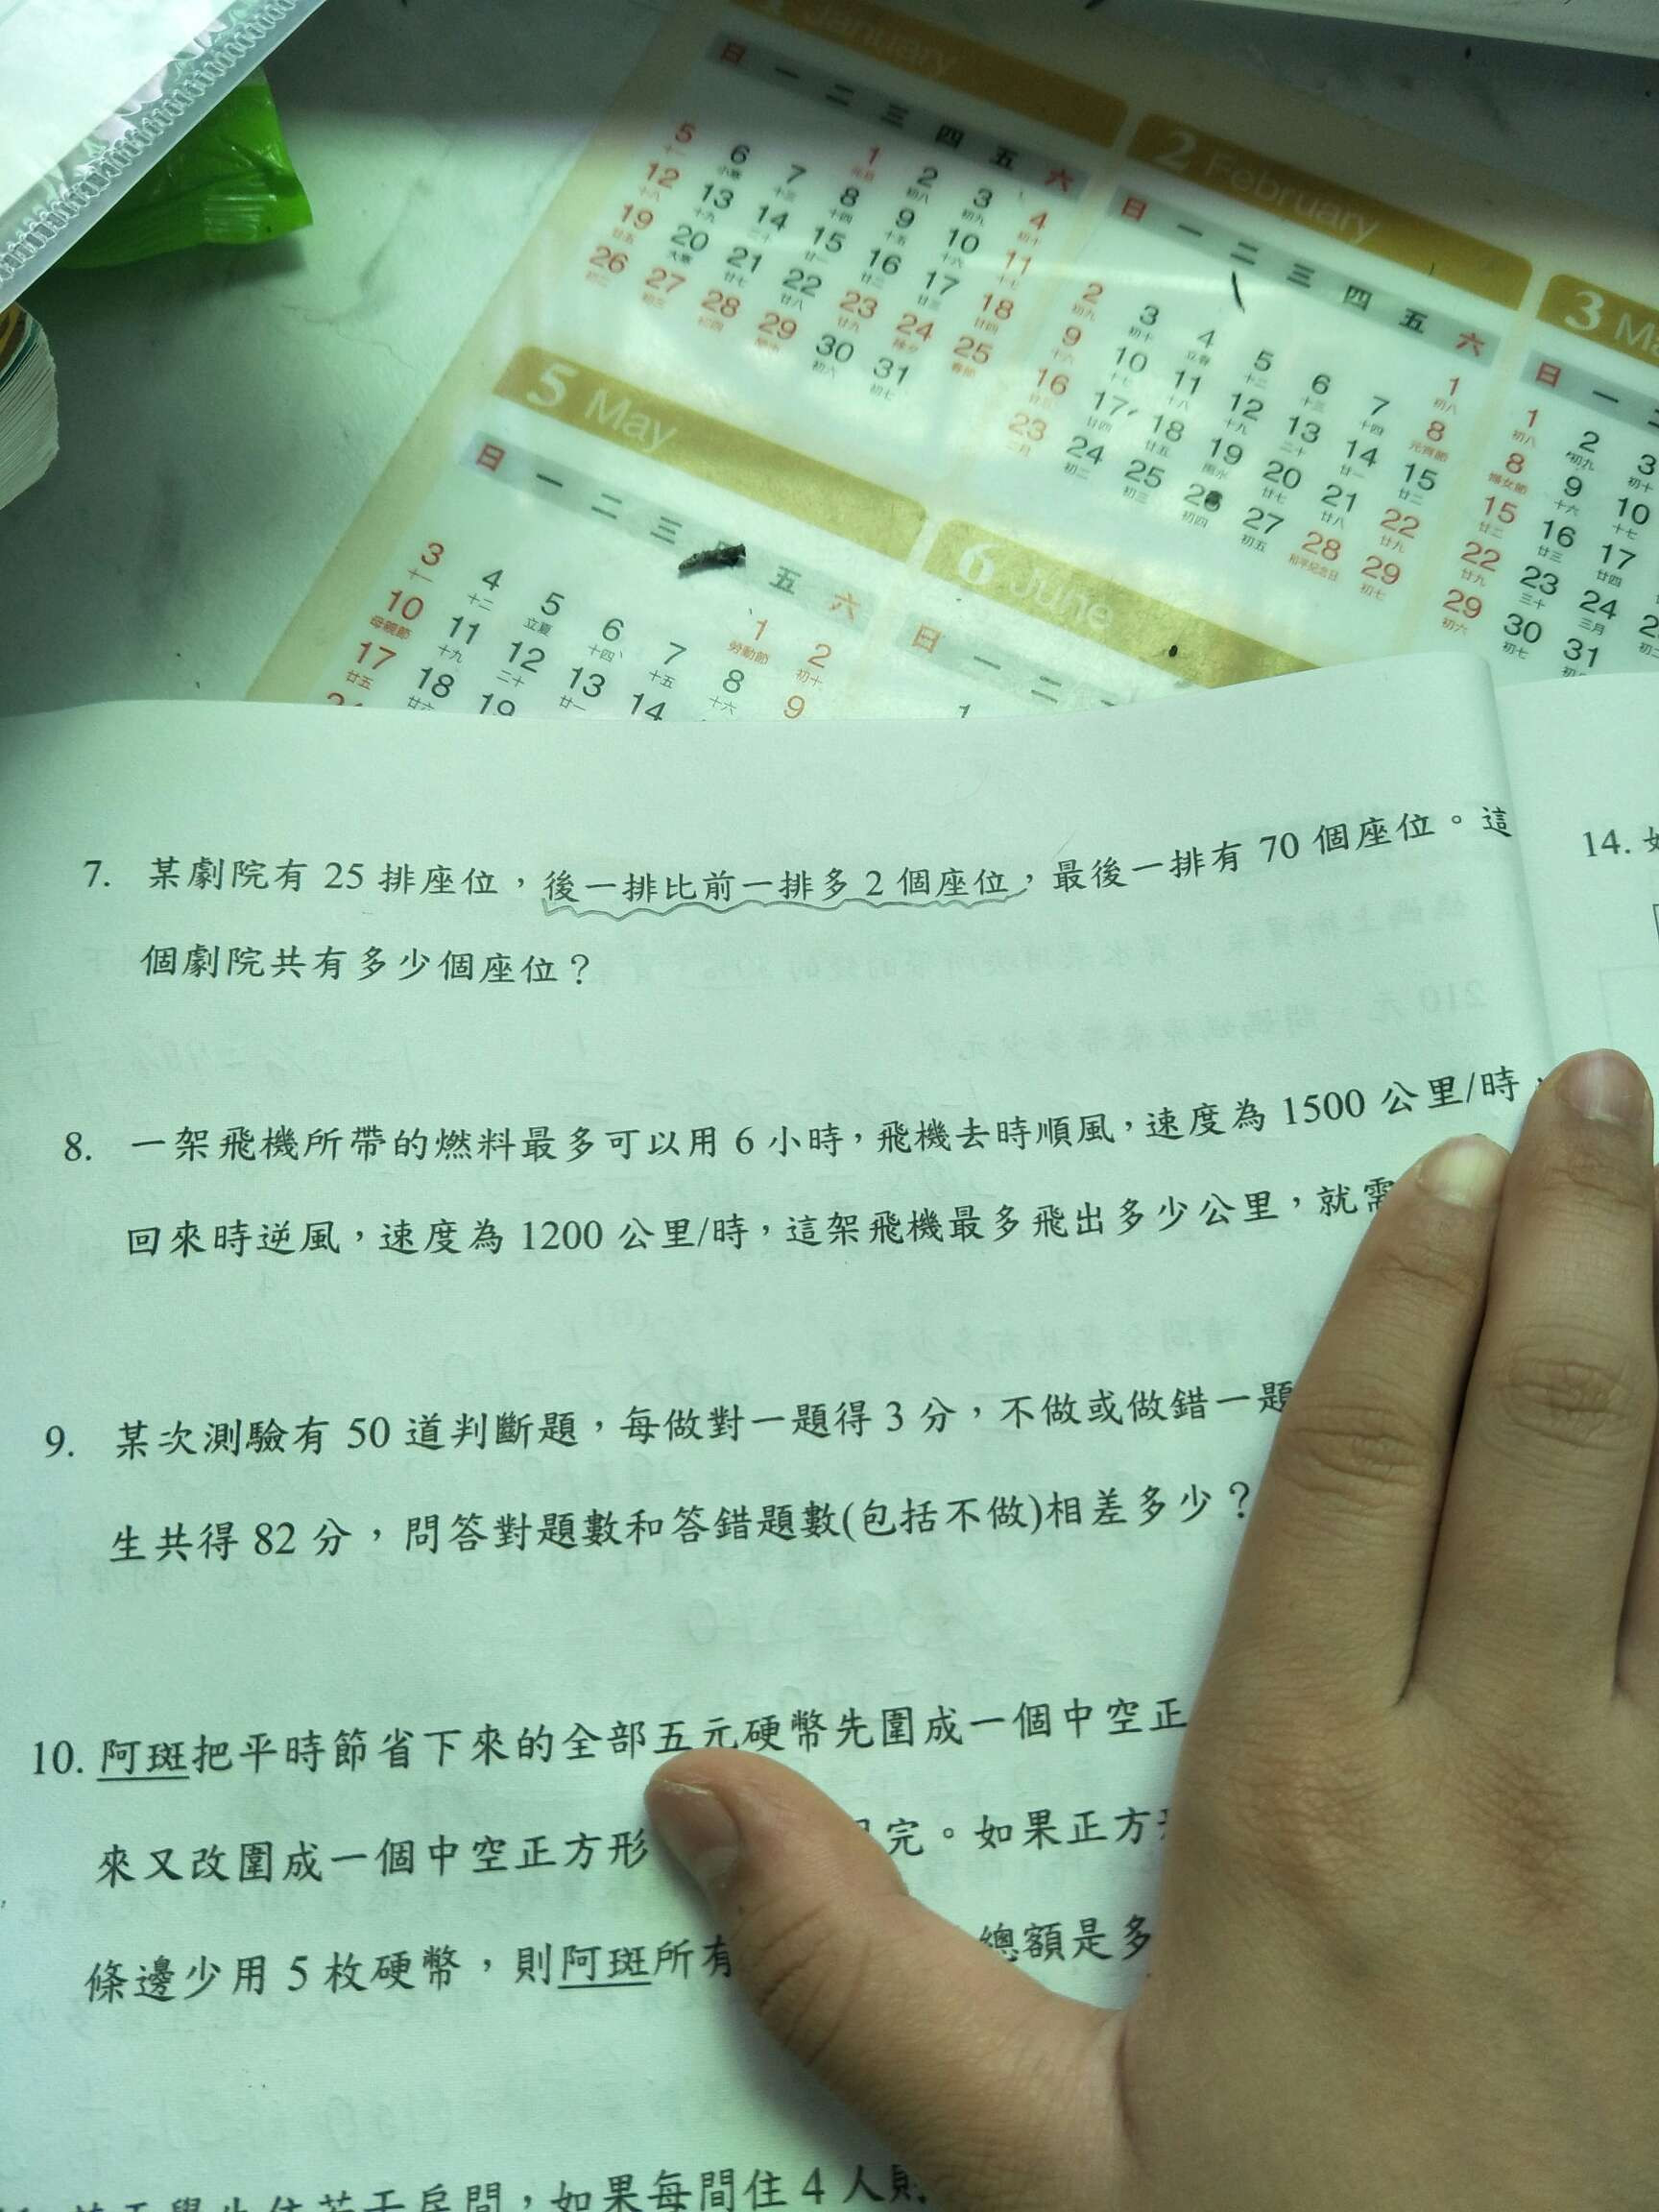 1 January
日 一 二 三 四 五 六
1 2 3 4
5 6 7 8 9 10 11
12 13 14 15 16 17 18
19 20 21 22 23 24 25
26 27 28 29 30 31
2 February
日 一 二 三 四 五 六
1
2 3 4 5 6 7 8
9 10 11 12 13 14 15
16 17 18 19 20 21 22
23 24 25 26 27 28 29
3 Ma
日 一 二
1 2 3
8 9 10
15 16 17
22 23 24
29 30 31
5 May
日 一 二 三 五 六
1 2
3 4 5 6 7 8 9
10 11 12 13 14
17 18 19
6 June
日 一 二
1
7. 某劇院有 25 排座位,後一排比前一排多 2 個座位,最後一排有 70 個座位。這
個劇院共有多少個座位?
8. 一架飛機所帶的燃料最多可以用 6 小時,飛機去時順風,速度為 1500 公里/時,
回來時逆風,速度為 1200 公里/時,這架飛機最多飛出多少公里,就需
9. 某次測驗有 50 道判斷題,每做對一題得 3 分,不做或做錯一題
生共得 82 分,問答對題數和答錯題數(包括不做)相差多少?
10. 阿斑把平時節省下來的全部五元硬幣先圍成一個中空正
來又改圍成一個中空正方形 完。如果正方
條邊少用 5 枚硬幣,則阿斑所有 總額是多
若干學生住若干房間,如果每間住 4 人則
14.